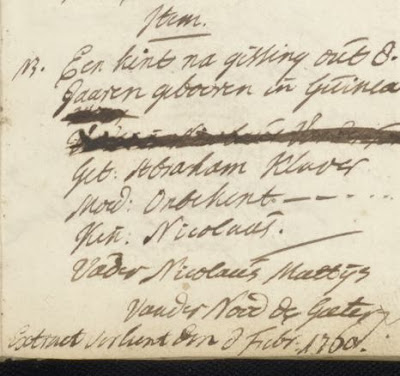 Item.
N3. Een kint na gissing out 8.
Jaaren gebooren in Guinea
Get: Abraham Kluver
Moed: Onbekent
Kin: Nicolaus.
Vader Nicolaus Mattijs
Vander Nood de Gieter
Extract verlient den 9 Febr. 1760.